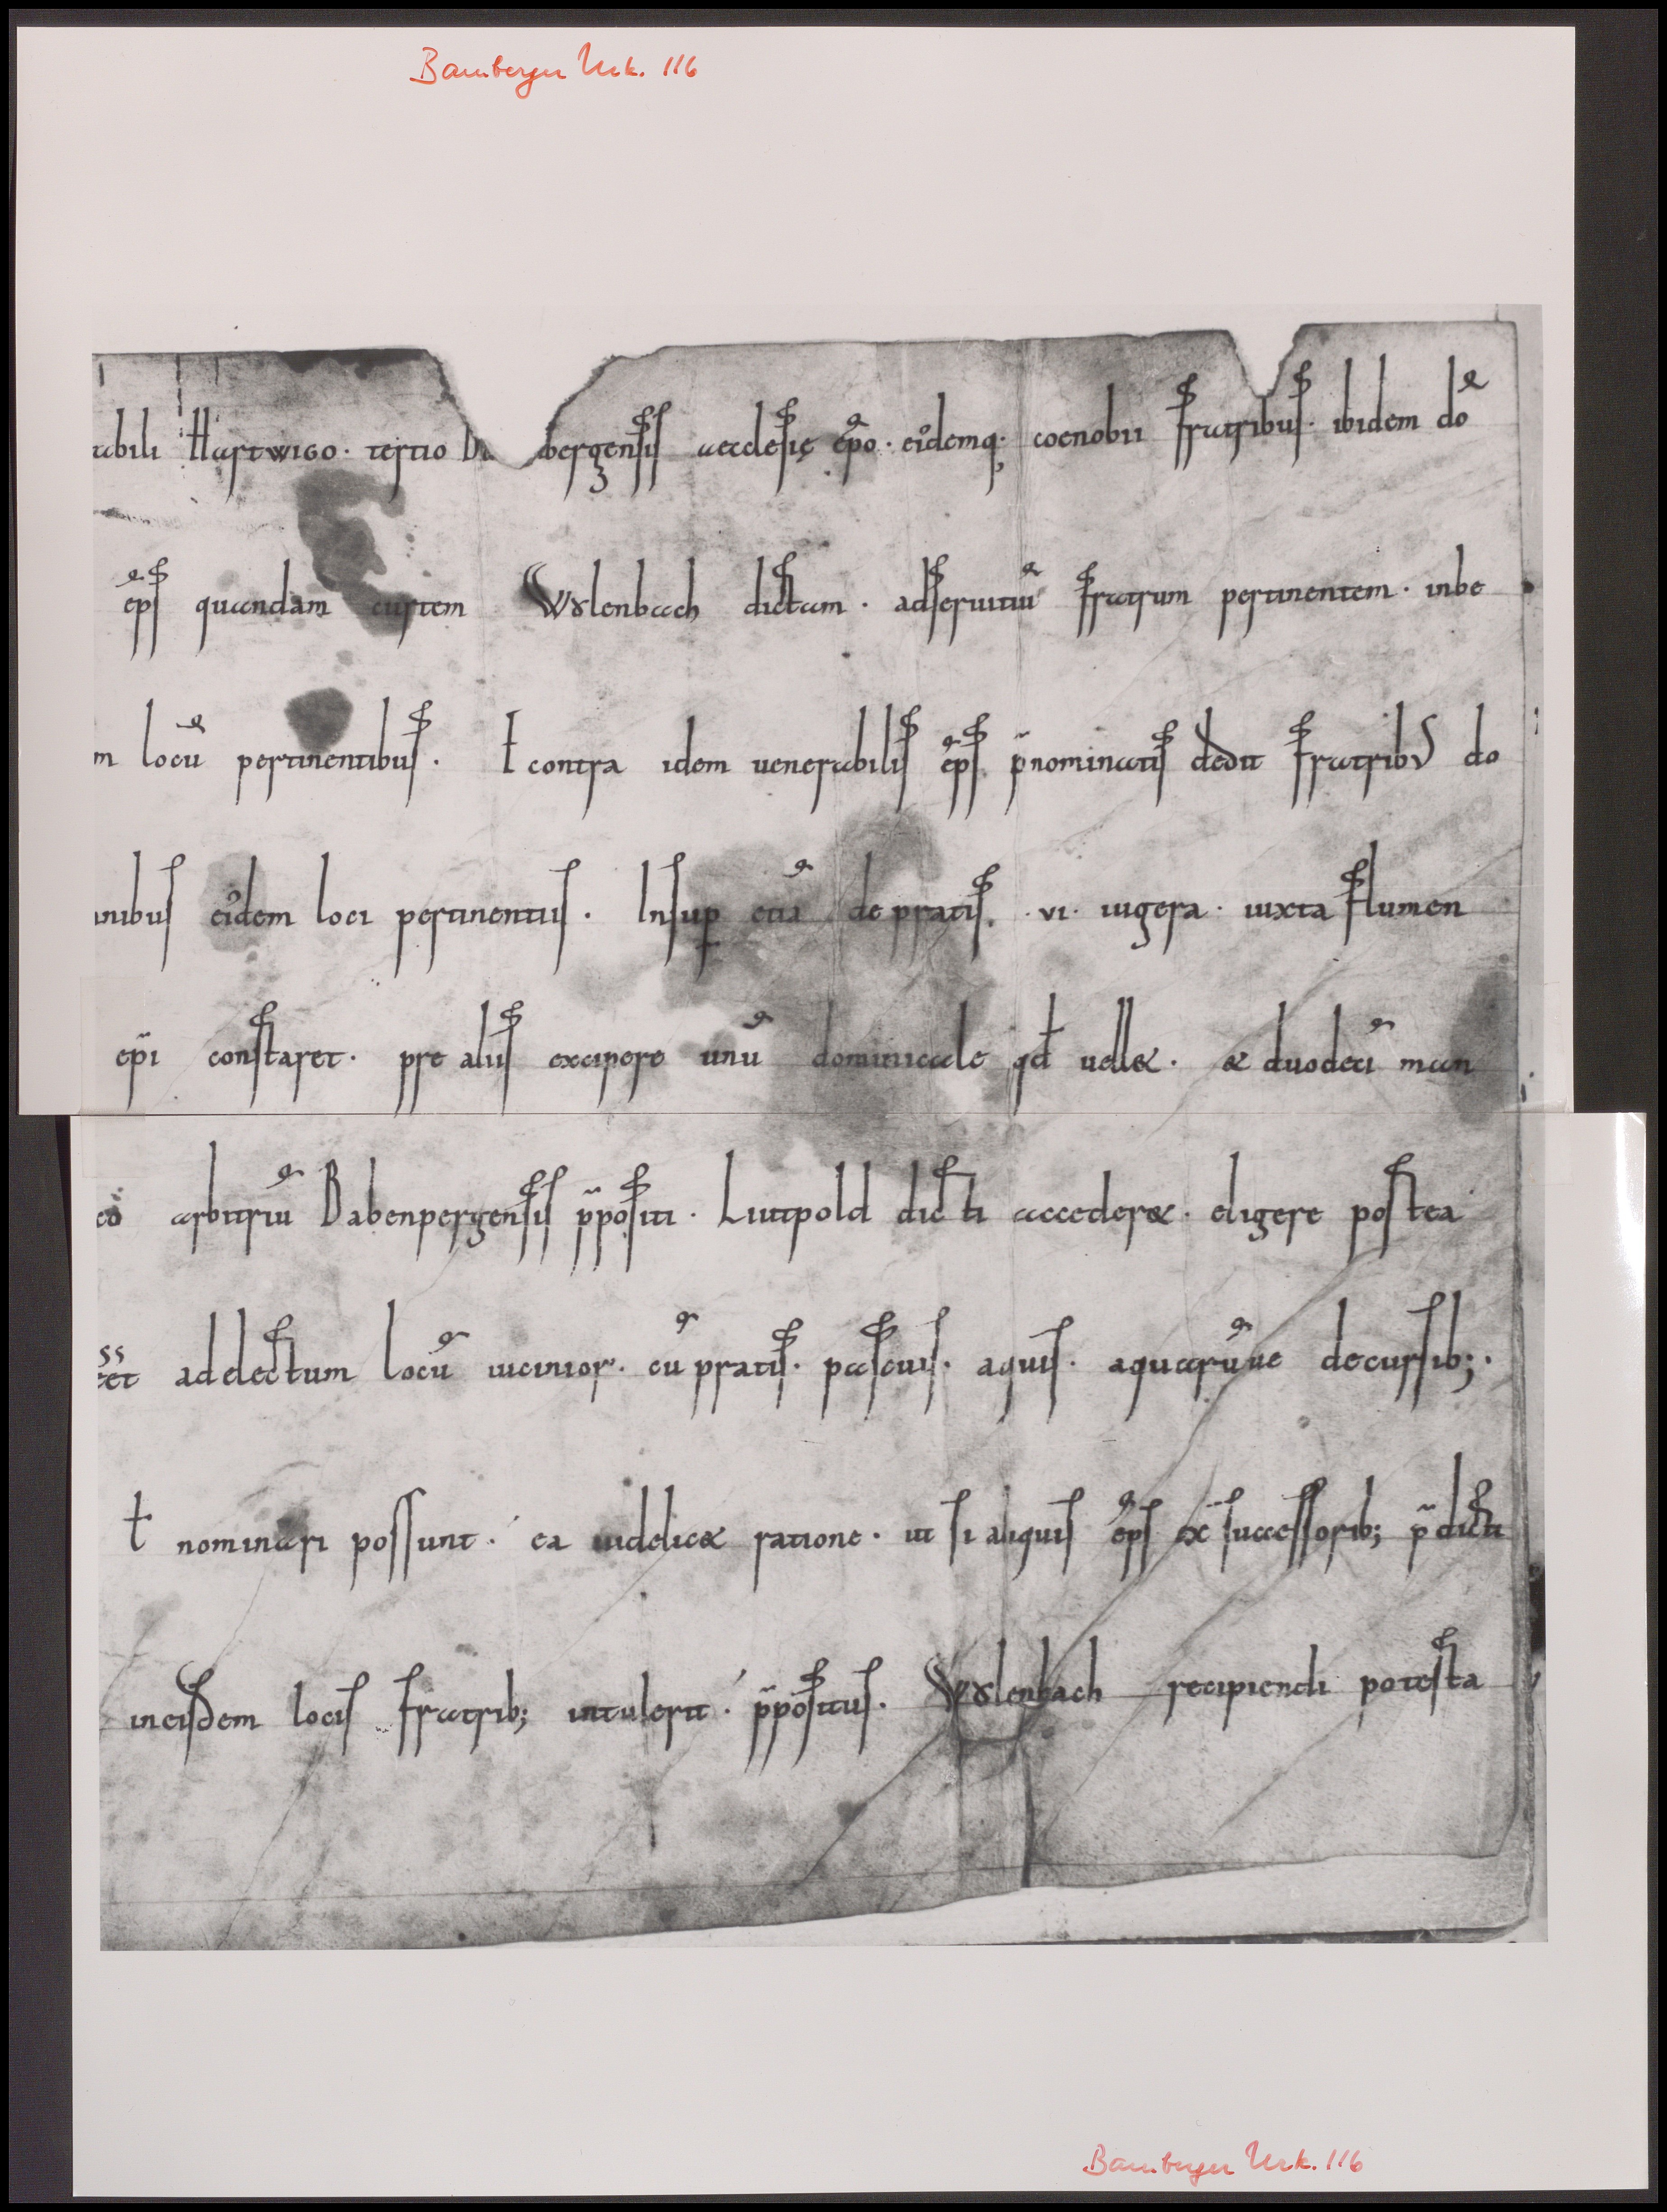 Bamberger Urk. 116
abili Hartwigo · tertio B bergensis aecclesię ep̃o · eidemq; coenobii fratribus · ibidem dõ
ep̃s quandam curtem Wslenbach dictam · adseruitiũ fratrum pertinentem · inbe
m locũ pertinentibus · Econtra idem uenerabilis ep̃s p̃nominatis dedit fratribus do
inibus eidem loci pertinentiis · Insup̱ etiã de pratis · vi · iugera · iuxta flumen
ep̃i constaret · pre aliis excipere unũ dominicale qđ uell& · & duodecĩ man
eo arbitriũ Babenpergensis p̃positi · Liutpold dicti acceder& · eligere postea
ss
et ad electum locũ uicinior · cũ pratis · pascuis · aquis · aquarũue decursib; ·
t nominari possunt · ea uidelic& ratione · ut si aliquis ep̃s ex successorib; p̃dicti
ineisdem locis fratrib; intulerit · p̃positus · Wslenbach recipiendi potesta
Bamberger Urk. 116